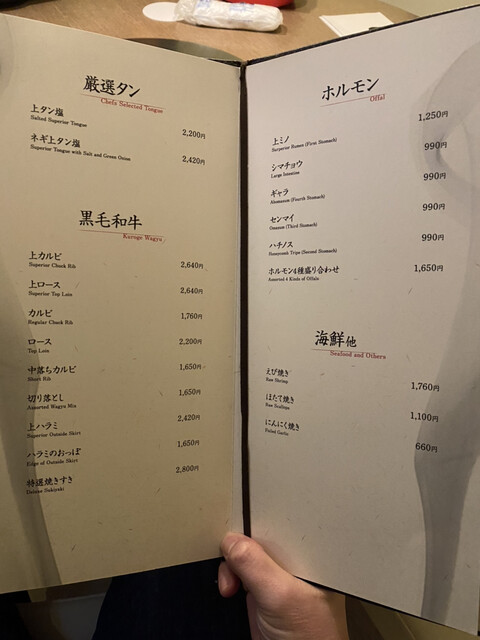 厳選タン
Chefs Selected Tongue
上タン塩
Salted Superior Tongue
2,200円
ネギ上タン塩
Superior Tongue with Salt and Green Onion
2,420円
黒毛和牛
Kuroge Wagyu
上カルビ
Superior Chuck Rib
2,640円
上ロース
Superior Top Loin
2,640円
カルビ
Regular Chuck Rib
1,760円
ロース
Top Loin
2,200円
中落ちカルビ
Short Rib
1,650円
切り落とし
Assorted Wagyu Mix
1,650円
上ハラミ
Superior Outside Skirt
2,420円
ハラミのおっぱ
Edge of Outside Skirt
1,650円
特選焼きすき
Deluxe Sukiyaki
2,800円
ホルモン
Offal
上ミノ
Surperior Rumen (First Stomach)
1,250円
シマチョウ
Large Intestine
990円
ギャラ
Abomasum (Fourth Stomach)
990円
センマイ
Omasum (Third Stomach)
990円
ハチノス
Honeycomb Tripe (Second Stomach)
990円
ホルモン4種盛り合わせ
Assorted 4 Kinds of Offals
1,650円
海鮮他
Seafood and Others
えび焼き
Raw Shrimp
1,760円
ほたて焼き
Raw Scallops
1,100円
にんにく焼き
Foiled Garlic
660円